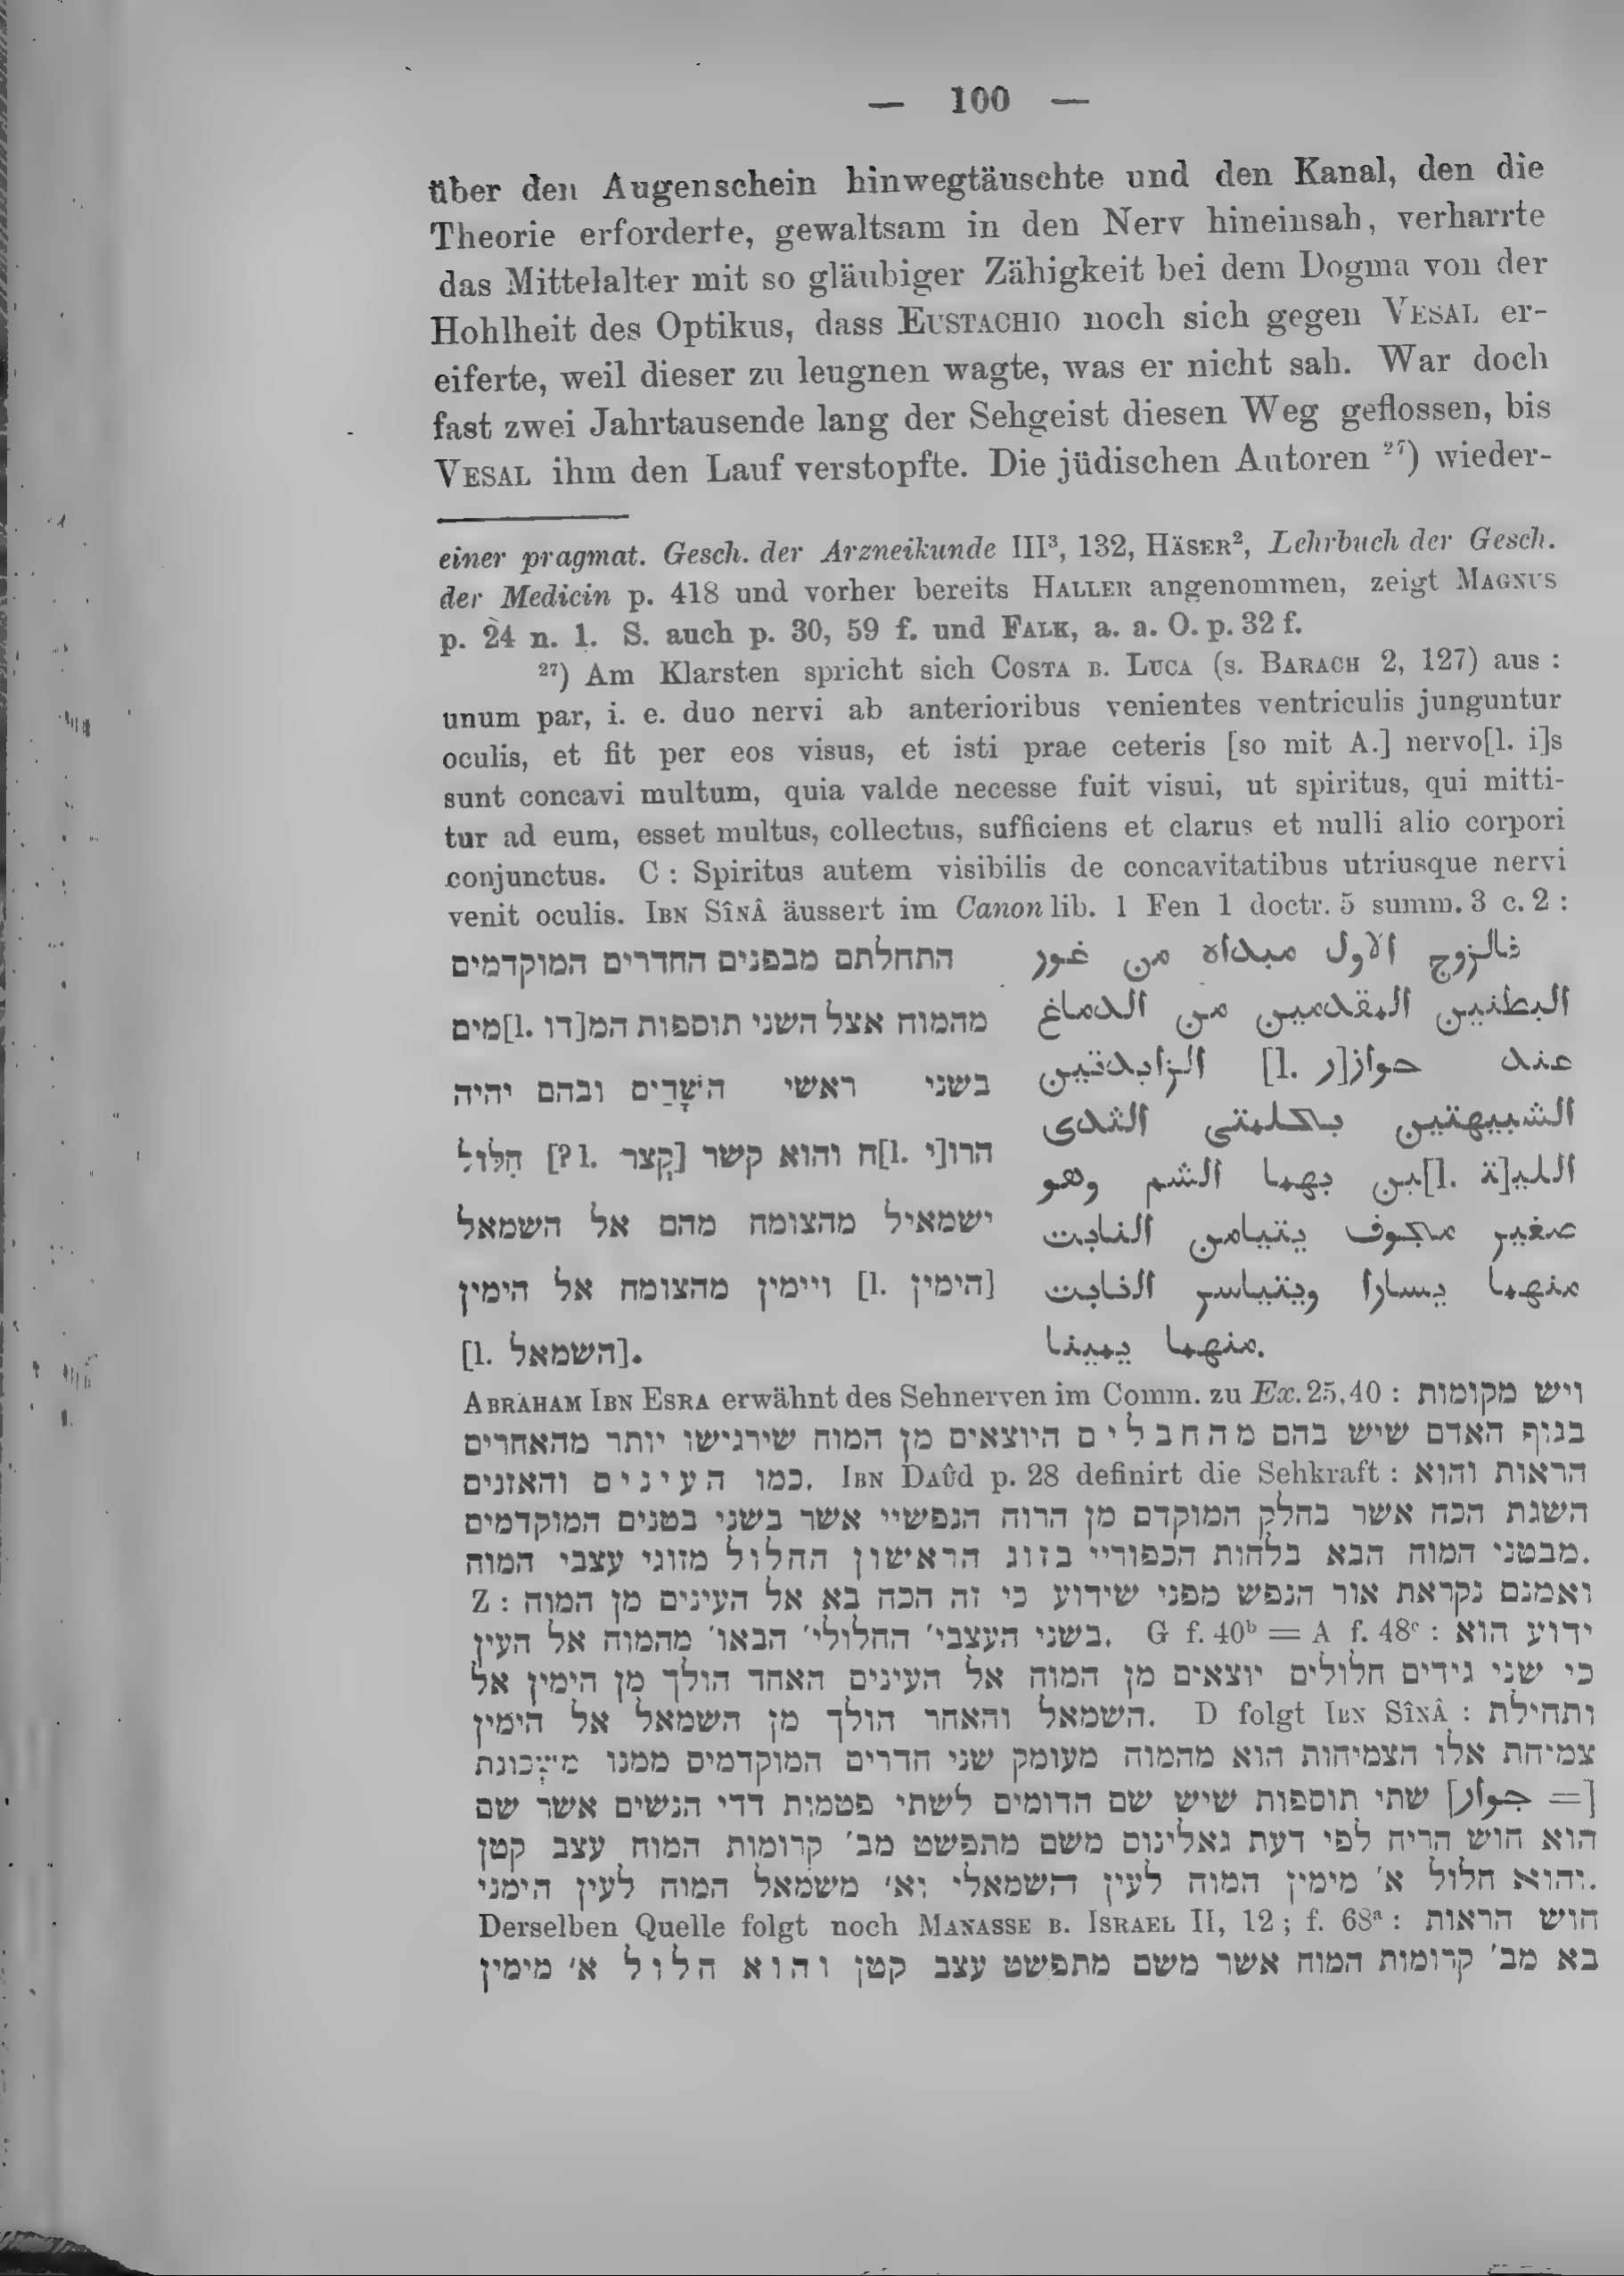 — 100 —
über den Augenschein hinwegtäuschte und den Kanal, den die
Theorie erforderte, gewaltsam in den Nerv hineinsah, verharrte
das Mittelalter mit so gläubiger Zähigkeit bei dem Dogma von der
Hohlheit des Optikus, dass EUSTACHIO noch sich gegen VESAL er-
eiferte, weil dieser zu leugnen wagte, was er nicht sah. War doch
fast zwei Jahrtausende lang der Sehgeist diesen Weg geflossen, bis
VESAL ihm den Lauf verstopfte. Die jüdischen Autoren ²⁷) wieder-
einer pragmat. Gesch. der Arzneikunde III³, 132, HÄSER², Lehrbuch der Gesch.
der Medicin p. 418 und vorher bereits HALLER angenommen, zeigt MAGNUS
p. 24 n. 1. S. auch p. 30, 59 f. und FALK, a. a. O. p. 32 f.
²⁷) Am Klarsten spricht sich COSTA B. LUCA (s. BARACH 2, 127) aus :
unum par, i. e. duo nervi ab anterioribus venientes ventriculis junguntur
oculis, et fit per eos visus, et isti prae ceteris [so mit A.] nervo[l. i]s
sunt concavi multum, quia valde necesse fuit visui, ut spiritus, qui mitti-
tur ad eum, esset multus, collectus, sufficiens et clarus et nulli alio corpori
conjunctus. C : Spiritus autem visibilis de concavitatibus utriusque nervi
venit oculis. IBN SÎNÂ äussert im Canon lib. 1 Fen 1 doctr. 5 summ. 3 c. 2 :
فالزوج الاول مبداه من غور
البطنين المقدمين من الدماغ
عند جواز[l. ر] الزايدتين
الشبيهتين بحلمتى الثدى
الليـ[l. تـ]ين بهما الشم وهو
صغير مجوف يتيامن النابت
منهما يسارا ويتياسر النابت
منهما يمينا.
התחלתם מבפנים החדרים המוקדמים
מהמוח אצל השני תוספות המ[דו l.]מים
בשני ראשי השָׁדַים ובהם יהיה
הרו[י l.]ח והוא קשר [קָצר l. ?] חלול
ישמאיל מהצומח מהם אל השמאל
[הימין l.] ויימין מהצומח אל הימין
[השמאל l.].
ABRAHAM IBN ESRA erwähnt des Sehnerven im Comm. zu Ex. 25,40 : ויש מקומות
בגוף האדם שיש בהם מהחבלים היוצאים מן המוח שירגישו יותר מהאחרים
כמו העינים והאזנים. IBN DAÛD p. 28 definirt die Sehkraft : הראות והוא
השגת הכח אשר בחלק המוקדם מן הרוח הנפשיי אשר בשני בטנים המוקדמים
מבטני המוח הבא בלחות הכפוריי בזוג הראשון החלול מזוגי עצבי המוח.
Z : ואמנם נקראת אור הנפש מפני שידוע כי זה הכח בא אל העינים מן המוח
בשני העצבי׳ החלולי׳ הבאו׳ מהמוח אל העין. G f. 40ᵇ = A f. 48ᶜ : ידוע הוא
כי שני גידים חלולים יוצאים מן המוח אל העינים האחד הולך מן הימין אל
השמאל והאחר הולך מן השמאל אל הימין. D folgt IBN SÎNÂ : ותחילת
צמיחת אלו הצמיחות הוא מהמוח מעומק שני חדרים המוקדמים ממנו
[= جوار] שתי תוספות שיש שם הדומים לשתי פטמות דדי הנשים אשר שם
הוא חוש הריח לפי דעת גאלינוס משם מתפשט מב׳ קרומות המוח עצב קטן
והוא חלול א׳ מימין המוח לעין השמאלי וא׳ משמאל המוח לעין הימני.
Derselben Quelle folgt noch MANASSE B. ISRAEL II, 12 ; f. 68ᵃ : חוש הראות
בא מב׳ קרומות המוח אשר משם מתפשט עצב קטן והוא חלול א׳ מימין